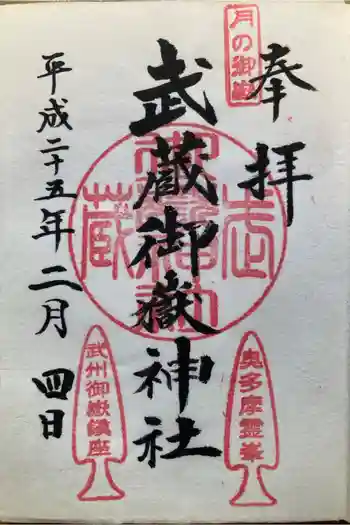 奉拝
月の御嶽
武蔵御嶽神社
平成二十五年二月四日
奥多摩霊峯
武州御嶽鎮座